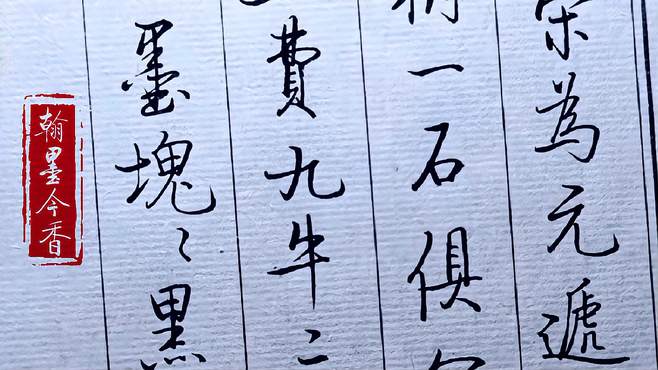 為元遞
一石俱
費九牛二
墨塊〻黑
翰墨今香